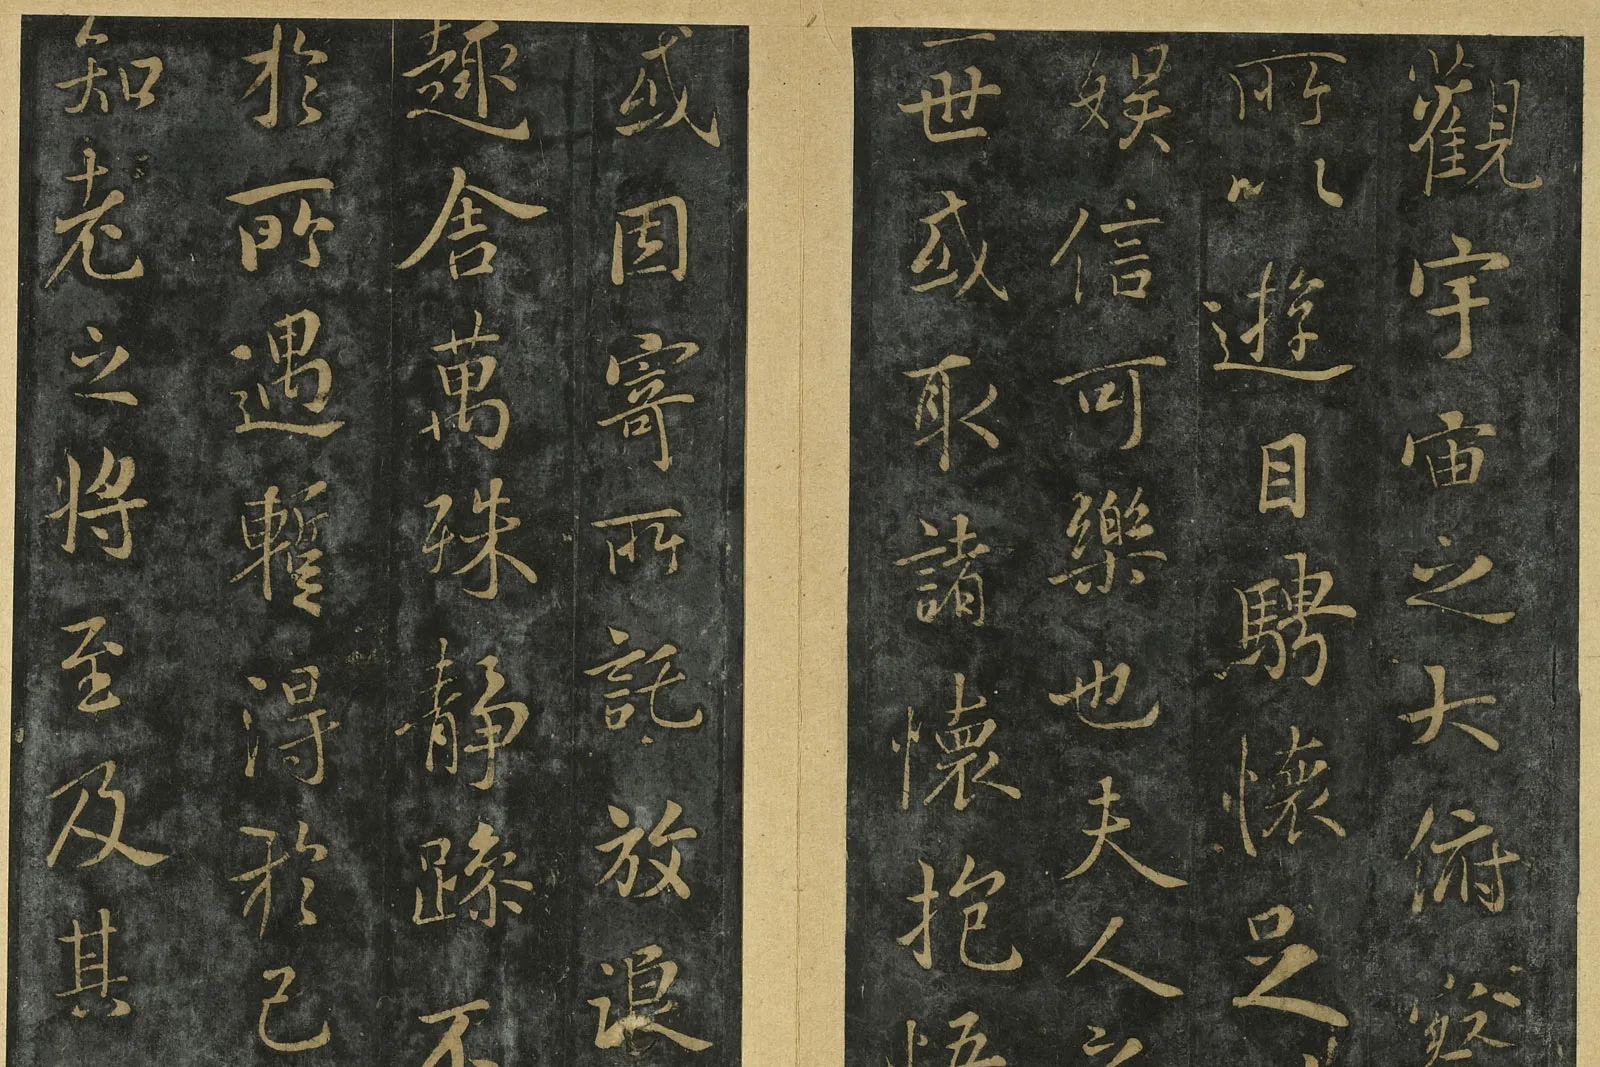 觀宇宙之大俯察
所以遊目騁懷足
娛信可樂也夫人之
一世或取諸懷抱悟
或因寄所託放浪
趣舍萬殊靜躁不
於所遇暫得於己
知老之將至及其